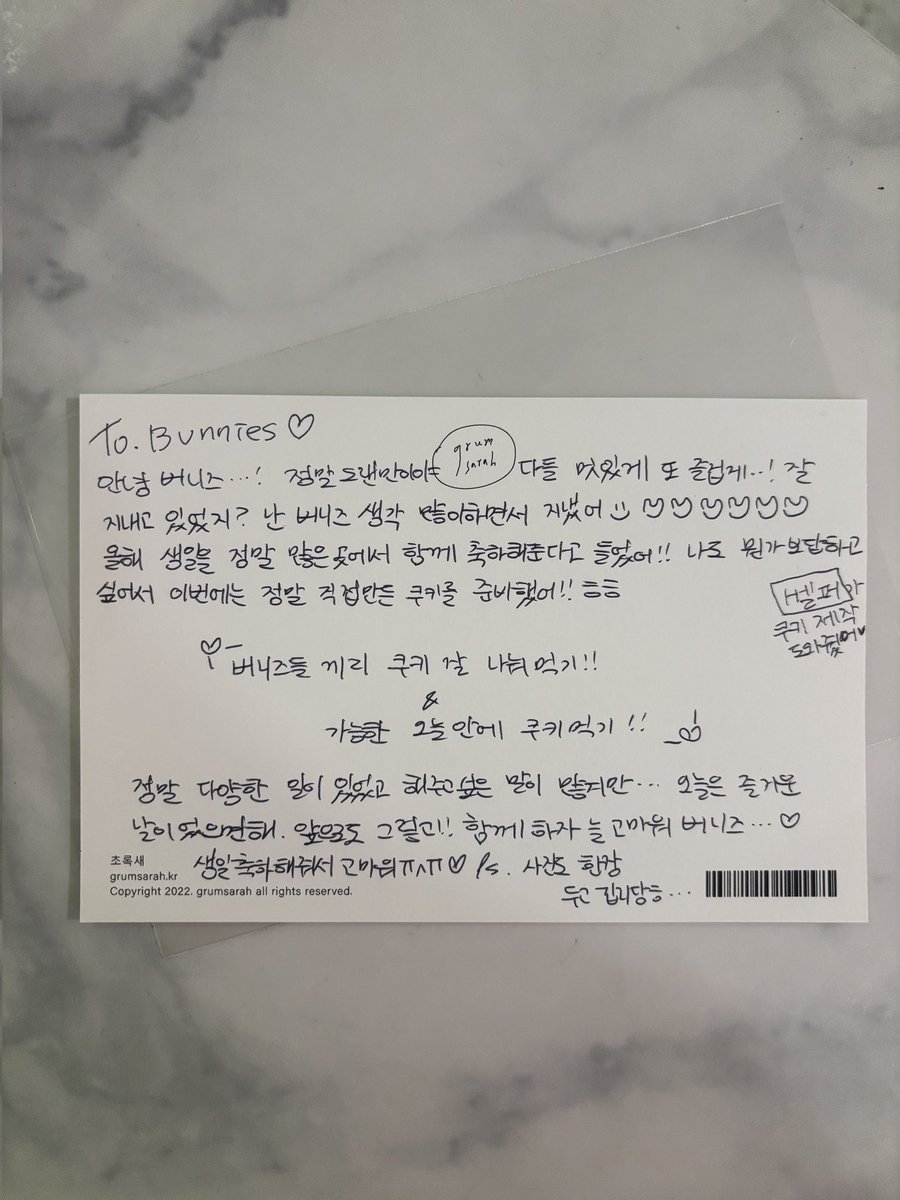 To. Bunnies ♡
안녕 버니즈...! 정말 오랜만이야 grum sarah 다들 멋있게 또 즐겁게..! 잘
지내고 있었지? 난 버니즈 생각 많이하면서 지냈어 ♡♡♡♡♡♡
올해 생일을 정말 많은 곳에서 함께 축하해준다고 들었어!! 나도 뭔가 보답하고
싶어서 이번에는 정말 직접만든 쿠키를 준비했어!! ㅎㅎ
헬퍼가
쿠키 제작
도와줬어♥
버니즈들 끼리 쿠키 잘 나눠먹기!!
&
가능한 오늘안에 쿠키먹기!!
정말 다양한 일이 있었고 해주고싶은 말이 많지만... 오늘은 즐거운
날이었으면해. 앞으로도 그럴고!! 함께하자 늘 고마워 버니즈... ♡
생일축하해줘서 고마워ㅠㅅㅠ♡ Ps. 사진도 한장
두고
초록새
grumsarah.kr
Copyright 2022. grumsarah all rights reserved.